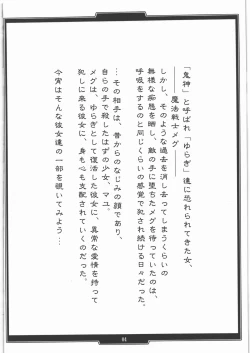 「鬼神」と呼ばれ「ゆらぎ」達に恐れられてきた女、
――― 魔法戦士メグ ―――
しかし、そのような過去を消し去ってしまうくらいの
無様な痴態を晒し、敵の手に堕ちたメグを待っていたのは、
呼吸をするのと同じくらいの感覚で犯され続ける日々だった。
…その相手は、昔からのなじみの顔であり、
自らの手で殺したはずの少女、マユ。
メグは、ゆらぎとして復活した彼女に、異常な愛情を持って
犯しに来る彼女に、身も心も支配されていくのだった。
今宵はそんな彼女達の一部を覗いてみよう…